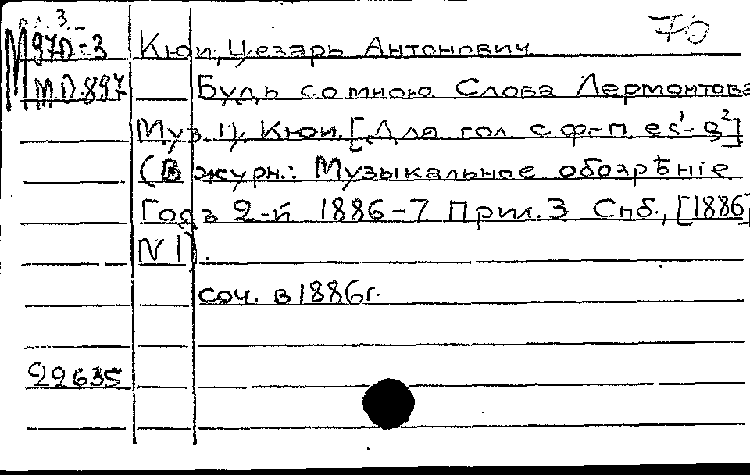 р.з. 3. 
М 970-3 Кюи, Цезарь Антонович
МП.897 Будь со мною Слова Лермонтова
Муз. Ц. Кюи. [Для гол. с ф-п. es¹-g²]
(В журн.: Музыкальное обозрѣніе
Годъ 2-й 1886-7 Прил. 3 Спб., [1886]
N 1).
соч. в 1886г.
22635